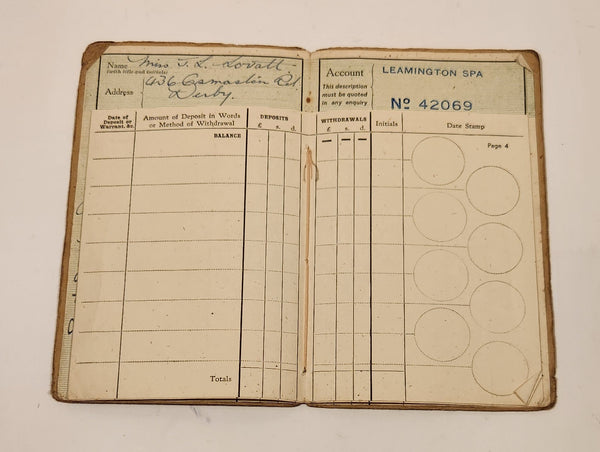 Name Miss T. L. Lovatt
(with title and initials)
436 Osmaston Rd.
Address Derby.
Account
This description
must be quoted
in any enquiry
LEAMINGTON SPA
No 42069
Date of
Deposit or
Warrant. &c.
Amount of Deposit in Words
or Method of Withdrawal
DEPOSITS
£ s. d.
WITHDRAWALS
£ s. d.
Initials
Date Stamp
BALANCE
— — —
Page 4
Totals